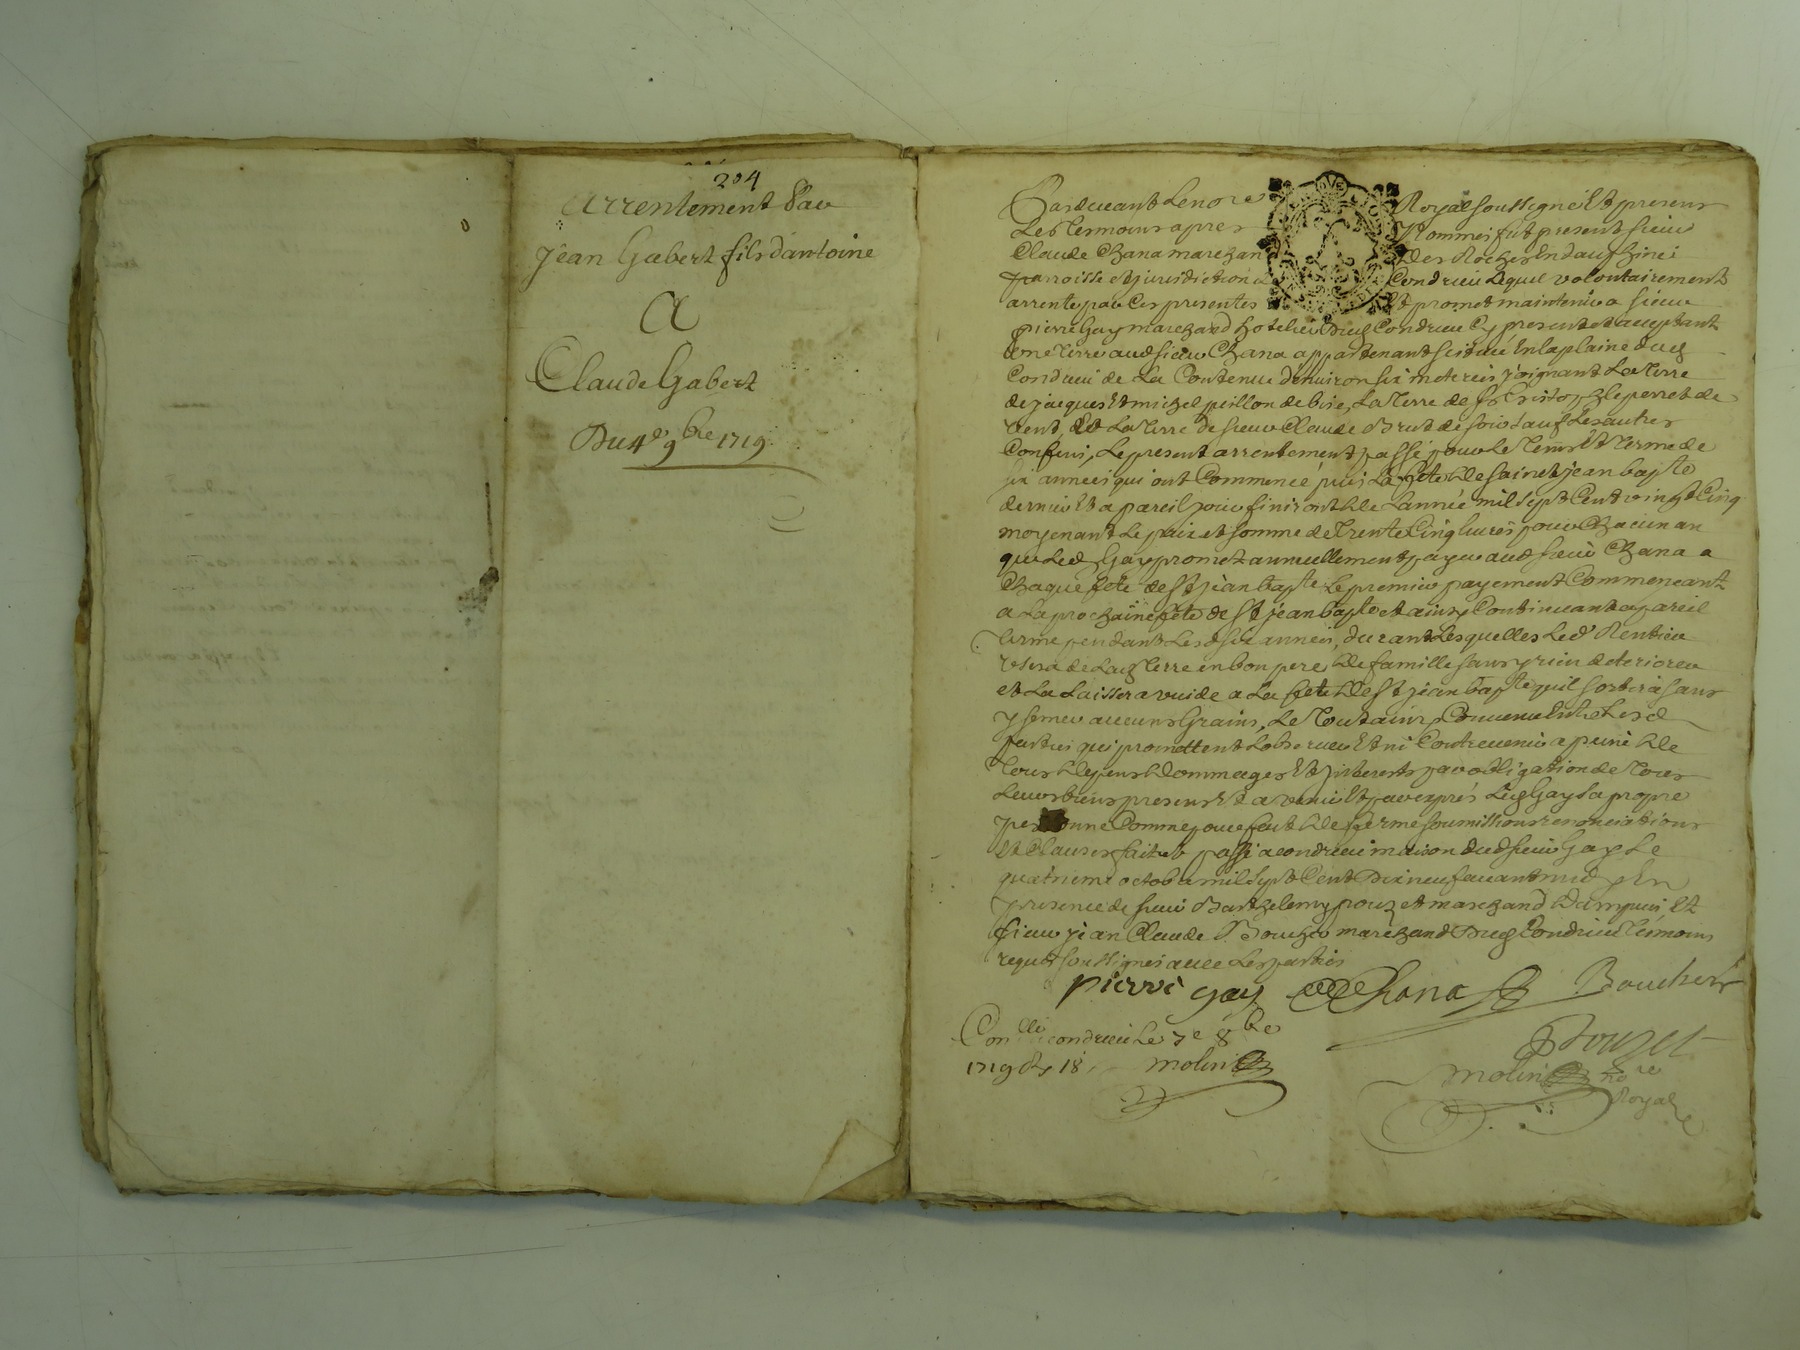 204
Arrentement Par
Jean Gabert fils dantoine
A
Claude Gabert
Du 4e 9bre 1719
Pardevant Le no re Royal soussigné Et presens
Les Termoins apres Nommes fut present sieur
Claude Chana marchand des Roches En dauphiné
paroisse et jurisdiction de Condrieu Lequel volontairement
arrente par Ces presentes Et promet maintenir a sieur
pierre Gay marchand hotelier dud Condrieu Cy present et acceptant
Une Terre aud sieur Chana appartenant scituée En la plaine dud
Condrieu de La Contenue d'environ six meterées joignant La Terre
de jacques Et michel peillon de bise, La Terre de Sr Cristophle perret de
vent, Et La Terre de sieur Claude Brut de soir sauf Les autres
Confins, Le present arrentement passé pour Le Tems Et Terme de
six années qui ont Commencé puis La fete de saint jean bapte
dernier Et a pareil jour finiront de L'année mil sept Cent vingt Cinq
moyenant Le prix et somme de Trente Cinq livres pour Chacun an
que Led Gay promet annuellement payer aud sieur Chana a
Chaque fete de St jean bapte Le premier payement Commencant
a La prochaine fete de St jean bapte et ainsy Continuant a pareil
Terme pendant Lesd six années, durant Lesquelles Led Rentier
usera de Lad Terre en bon pere de famille sans y rien deteriorer
et La Laissera vuide a La fete de St jean bapte quil sortira sans
y semer aucuns Grains, Le Tout ainsy Convenu Entre Lesd
parties qui promettent L'observer Et ni Contrevenir a peine de
Tous depens dommages Et jnterests par obligation de Tous
Leurs biens presens Et a venir Et par exprés Led Gay sa propre
personne Comme pour fait de ferme soumissions renonciations
Et Clauses fait et passé a condrieu maison dud sieur Gay Le
quatrieme octobre mil sept Cent Dix neuf avant midy En
presence de sieur Barthelemy pouzet marchand Et
sieur jean Claude Boucher marchand Dud Condrieu Témoins
requis soussignes avec Les parties
pierre gay Chana Boucher
Conllé a condrieu Le 7e 8bre
Pouzet
1719 18 molin
molin no re
Royal